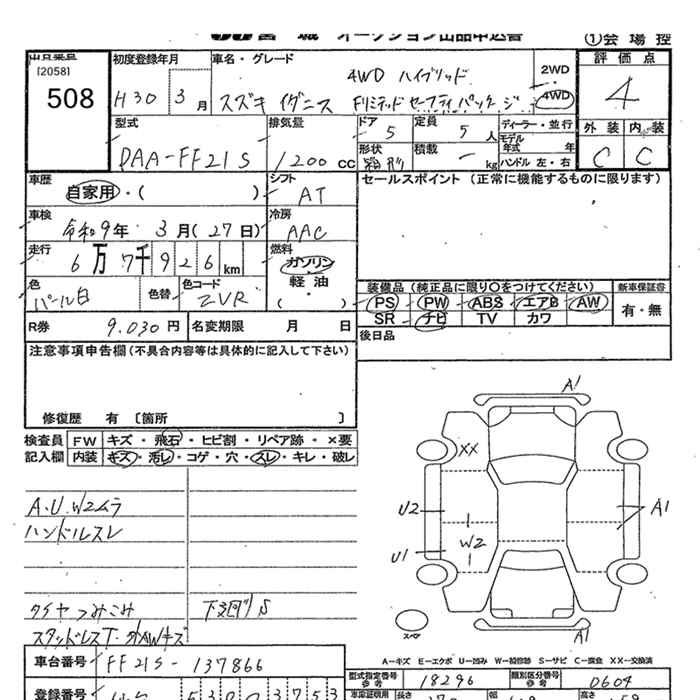 JU 宮 城 オークション出品申込書 ①会 場 控
出品番号
[2058]
508
初度登録年月
H30 3 月
車名・グレード
4WD ハイブリッド
スズキ イグニス Fリミテッド セーフティパッケージ
2WD
4WD
評 価 点
4
型式
DAA-FF21S
排気量
1200 CC
ドア
5
定員
5 人
形状
箱形
積載
- kg
ディーラー・並行
モデル
年式 年
ハンドル 左・右
外 装 内 装
C C
車歴
自家用・( )
シフト
AT
セールスポイント (正常に機能するものに限ります)
車検
令和9年 3月(27日)
冷房
AAC
走行
6万7千926km
燃料
ガソリン
軽 油
( ・ )
色
パール白
色替
色コード
ZVR
装備品 (純正品に限り〇をつけてください) 新車保証書
PS PW ABS エアB AW
SR ナビ TV カワ
有・無
R券 9.030 円
名変期限 月 日
後日品
注意事項申告欄(不具合内容等は具体的に記入して下さい)
修復歴 有 〔箇所 〕
検査員 FW キズ・飛石・ヒビ割・リペア跡・×要
記入欄 内装 キズ・汚レ・コゲ・穴・スレ・キレ・破レ
A.U.W2ムラ
ハンドルスレ
タイヤつみこみ 下廻りS
スタッドレスT・付AWキズ
A1
XX
U2
A1
W2
U1
スペア
A1
A-キズ E-エクボ U-凹み W-補修跡 S-サビ C-腐食 XX-交換済
車台番号 FF21S-137866
型式指定番号
参考
18296
類別区分番号
参考
0604
登録番号
車庫証明用
長さ